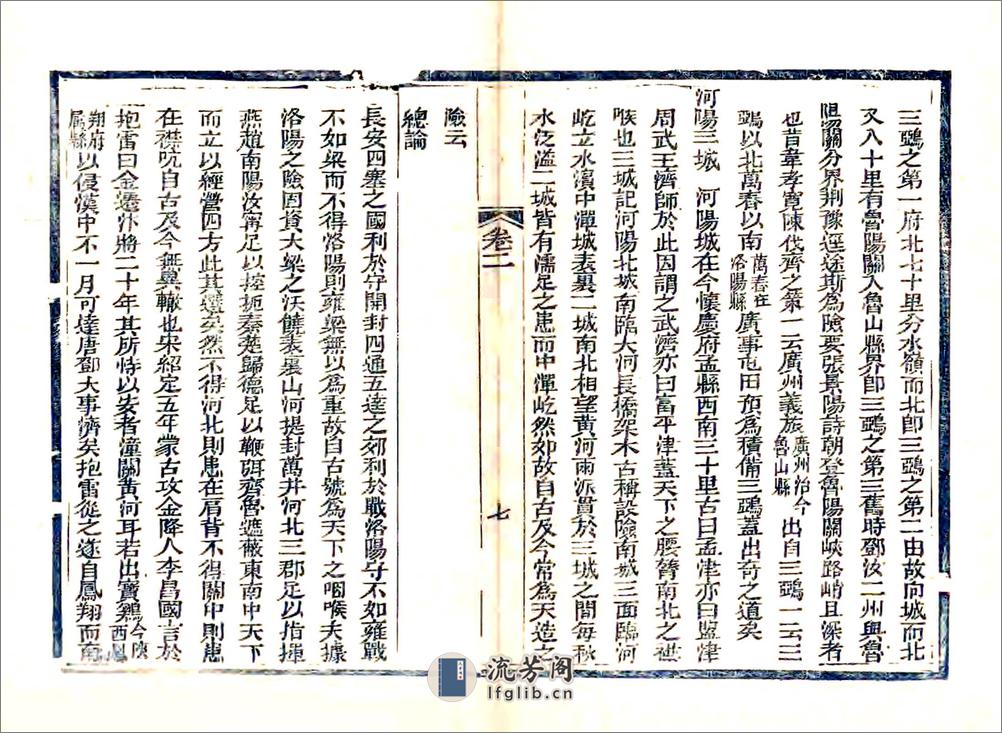 三鵶之第一府北七十里分水嶺而北卽三鵶之第二由故向城而北
又八十里有魯陽關入魯山縣界卽三鵶之第三舊時鄧汝二州與魯
陽關分界荆豫逕途斯爲險要張景陽詩朝登魯陽關峽路峭且深者
也昔韋孝寬陳伐齊之策一云廣州義旅廣州治今魯山縣出自三鵶一云三
鵶以北萬春以南萬春在洛陽縣廣事屯田預爲積備三鵶蓋出奇之道矣
河陽三城 河陽城在今懷慶府孟縣西南三十里古曰孟津亦曰盟津
周武王濟師於此因謂之武濟亦曰富平津蓋天下之腰膂南北之襟
喉也三城記河陽北城南臨大河長橋架木古稱設險南城三面臨河
屹立水濱中潬城表裏二城南北相望黃河兩派貫於三城之間每秋
水泛溢二城皆有濡足之患而中潬屹然如故自古及今常爲天造之
險云
總論
長安四塞之國利於守開封四通五達之郊利於戰洛陽守不如雍戰
不如梁而不得洛陽則雍梁無以爲重故自古號爲天下之咽喉夫據
洛陽之險固資大梁之沃饒表裏山河提封萬井河北三郡足以指揮
燕趙南陽汝寗足以控扼秦楚歸德足以鞭弭齊魯遮蔽東南中天下
而立以經營四方此其選矣然不得河北則患在肩背不得關中則患
在襟吭自古及今無異轍也宋紹定五年蒙古攻金降人李昌國言於
拖雷曰金遷汴將二十年其所恃以安者潼關黃河耳若出寶鷄今陝西鳳
翔府屬縣以侵漢中不一月可達唐鄧大事濟矣拖雷從之遂自鳳翔而南
卷二
七
流芳阁
lfglib.cn